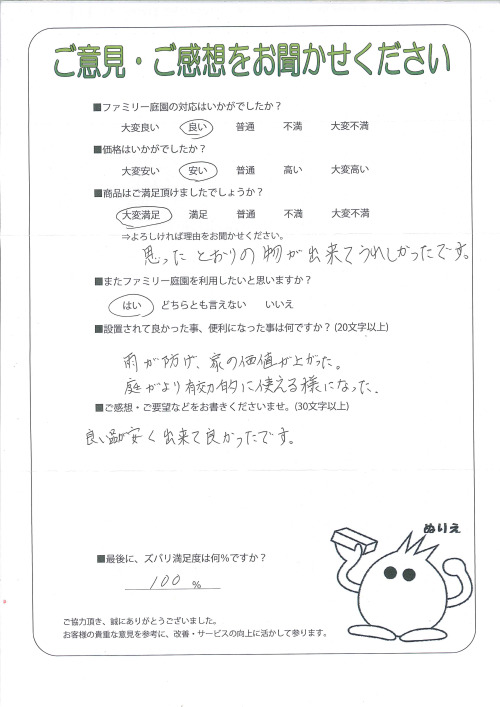 ご意見・ご感想をお聞かせください
■ファミリー庭園の対応はいかがでしたか？
大変良い 良い 普通 不満 大変不満
■価格はいかがでしたか？
大変安い 安い 普通 高い 大変高い
■商品はご満足頂けましたでしょうか？
大変満足 満足 普通 不満 大変不満
⇒よろしければ理由をお聞かせください。
思ったとおりの物が出来てうれしかったです。
■またファミリー庭園を利用したいと思いますか？
はい どちらとも言えない いいえ
■設置されて良かった事、便利になった事は何ですか？(20文字以上)
雨が防げ、家の価値が上がった。
庭がより有効的に使える様になった.
■ご感想・ご要望などをお書きくださいませ。(30文字以上)
良い品が安く出来て良かったです。
ぬりえ
■最後に、ズバリ満足度は何％ですか？
100 %
ご協力頂き、誠にありがとうございました。
お客様の貴重な意見を参考に、改善・サービスの向上に活かして参ります。